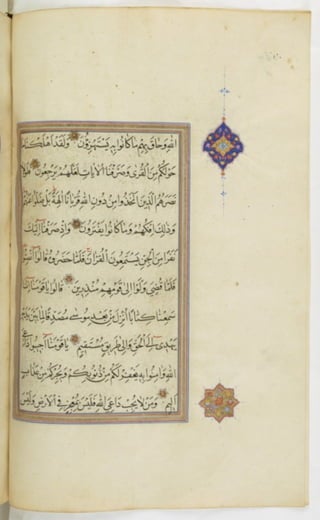 الله وحاق بهم ما كانوا به يستهزؤن ولقد اهلكنا ما
حولكم من القرى وصرفنا الآيات لعلهم يرجعون فلولا
نصرهم الذين اتخذوا من دون الله قربانا آلهة بل ضلوا عنهم
وذلك افكهم وما كانوا يفترون واذ صرفنا اليك
نفرا من الجن يستمعون القرآن فلما حضروه قالوا انصتوا
فلما قضى ولوا الى قومهم منذرين قالوا يا قومنا انا
سمعنا كتابا انزل من بعد موسى مصدقا لما بين يديه
يهدى الى الحق والى طريق مستقيم يا قومنا اجيبوا داعى
الله وآمنوا به يغفر لكم من ذنوبكم ويجركم من عذاب
اليم ومن لا يجب داعى الله فليس بمعجز فى الارض وليس